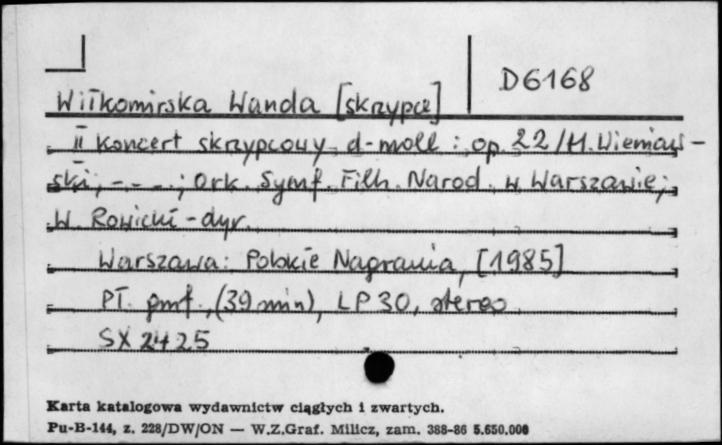 D6168
Wiłkomirska Wanda [skrzypce]
II koncert skrzypcowy d-moll : op. 22 / H. Wieniaw-
ski, - - - ; Ork. Symf. Filh. Narod. w Warszawie;
W. Rowicki - dyr.
Warszawa: Polskie Nagrania, [1985]
Pł. gmf., (39 min), LP 30, stereo
SX 2425
Karta katalogowa wydawnictw ciągłych i zwartych.
Pu-B-144, z. 228/DW/ON — W.Z.Graf. Milicz, zam. 388-86 5.650.000